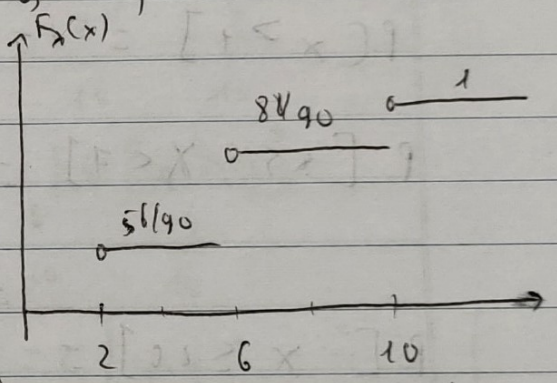 Fx(x)
1
88/90
56/90
2 6 10